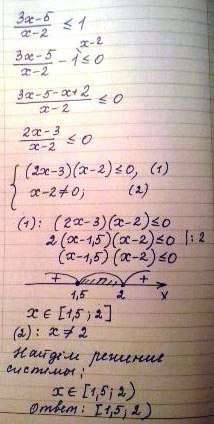 (3x-5)/(x-2) ≤ 1
x-2
(3x-5)/(x-2) - 1 ≤ 0
(3x-5-x+2)/(x-2) ≤ 0
(2x-3)/(x-2) ≤ 0
{ (2x-3)(x-2) ≤ 0, (1)
x-2 ≠ 0; (2)
(1): (2x-3)(x-2) ≤ 0
2(x-1,5)(x-2) ≤ 0 |:2
(x-1,5)(x-2) ≤ 0
+ - +
1,5 2 x
x ∈ [1,5; 2]
(2): x ≠ 2
Найдём решение
системы:
x ∈ [1,5; 2)
Ответ: [1,5; 2)